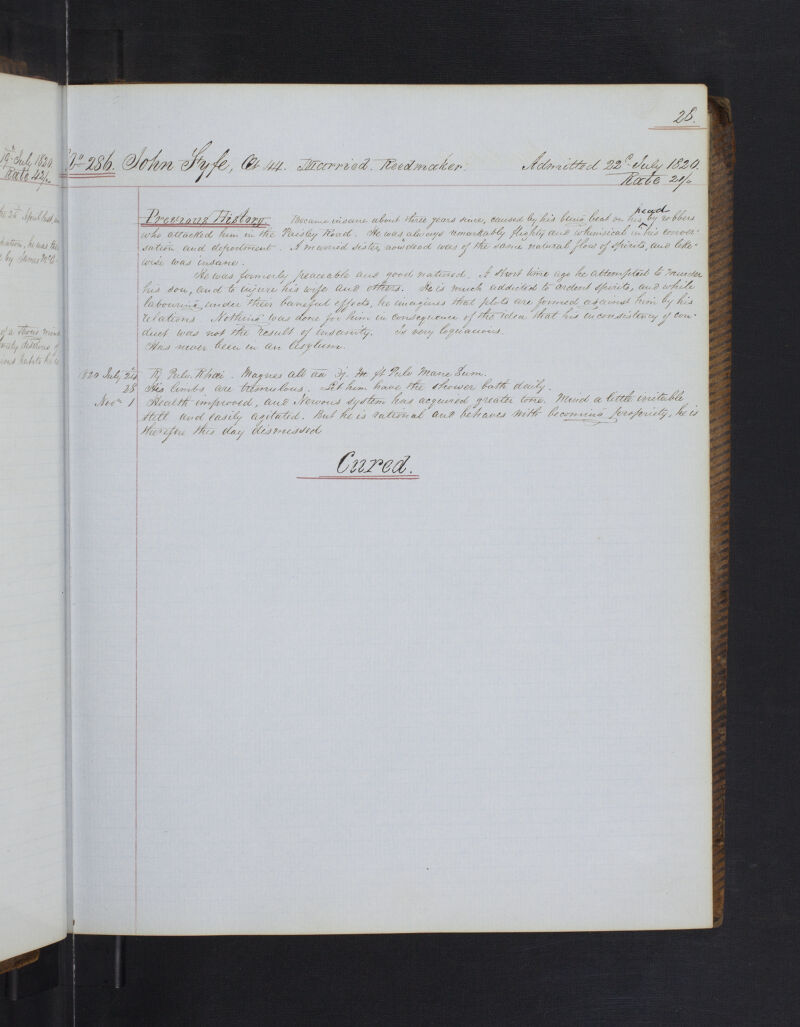 28.
No 286. John Fyfe, Æ 44. Married. Reedmaker. Admitted 22d July 1820.
Rate 21/-
Previous History Became insane about three years since, caused by his being beat on his head by robbers
who attacked him in the Paisley Road. He was always remarkably flighty and whimsical in his conver-
sation and deportment. A married sister, now dead was of the same natural flow of spirits, and like-
wise was insane.
He was formerly peaceable and good natured. A short time ago he attempted to murder
his son, and to injure his wife and others. He is much addicted to ardent spirits, and while
labouring under their baneful effects, he imagines that plots are formed against him by his
relations. Nothing was done for him in consequence of the idea that his inconsistency of con-
duct was not the result of insanity. is very loquacious.
Has never been in an Asylum.
1820 July 24 ℞ Pulv. Rhei. Magnes alb aa ʒj. M. ft Pulv Mane Sum.
28 His limbs are tremulous. Let him have the shower bath daily.
Novr 1 Health improved, and Nervous system has acquired greater tone. Mind a little irritable
still and easily agitated. But he is rational and behaves with becoming propriety, he is
therefore this day dismissed
Cured.
19th July 1820
Rate 42/-
April last
he was
by James Mc
of a
habits he is